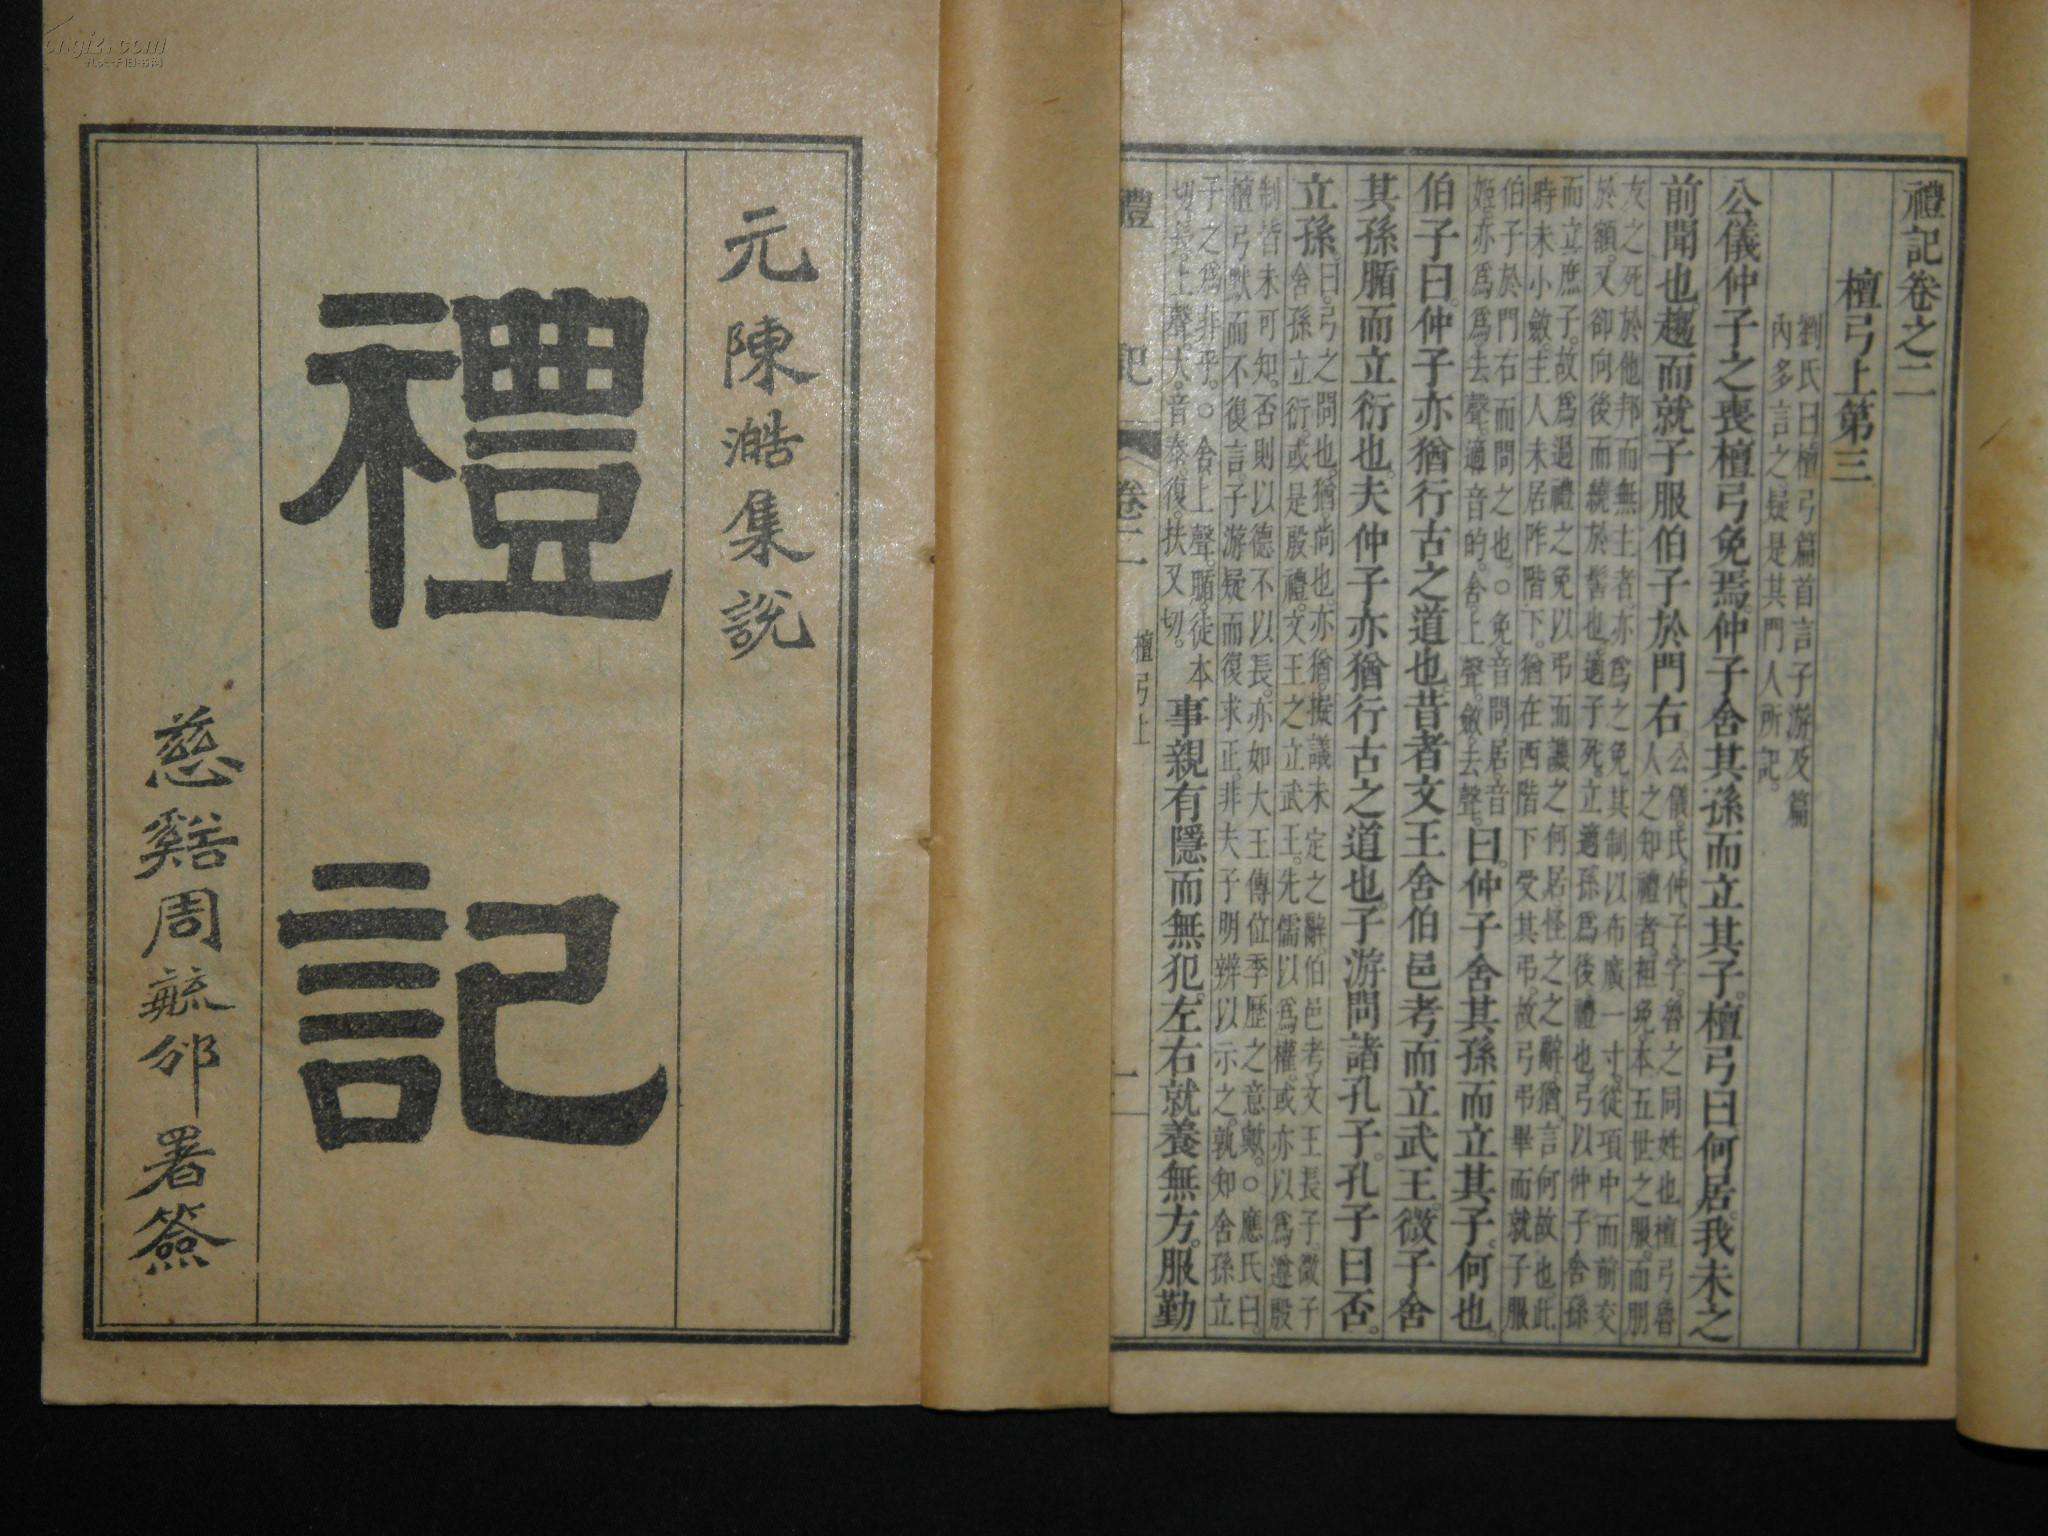 元陳澔集說
禮記
慈谿周毓邠署簽
禮記卷之二
檀弓上第三
劉氏曰檀弓篇首言子游及篇
內多言之疑是其門人所記。
公儀仲子之喪檀弓免焉。仲子舍其孫而立其子。檀弓曰何居。我未之
前聞也。趨而就子服伯子於門右
公儀。氏仲子。字。魯之同姓也檀弓魯
人之知禮者。袒免本五世之服。而朋
友之死於他邦而無主者。亦爲之免其制以布廣一寸。從項中而前交
於額。又卻向後而繞於髻也。適子死。立適孫爲後禮也。弓以仲子舍孫
而立庶子。故爲過禮之免以弔而譏之何居怪之之辭。猶言何故也此
時未小斂。主人未居阼階下。猶在西階下受其弔。故弓弔畢而就子服
伯子於門右而問之也。○免音問居音
姬。亦爲爲去聲。適音的。舍上聲。斂去聲。
曰。仲子舍其孫而立其子。何也。
伯子曰。仲子亦猶行古之道也。昔者文王舍伯邑考而立武王。微子舍
其孫腯而立衍也。夫仲子亦猶行古之道也。子游問諸孔子。孔子曰否。
立孫。
曰。弓之問也。猶尚也亦猶。擬議未定之辭。伯邑考文王長子。微子
舍孫立衍。或是殷禮。文王之立武王。先儒以爲權。或亦以爲遵殷
制皆未可知。否則以德不以長。亦如大王傳位季歷之意歟。○應氏曰。
檀弓默而不復言。子游疑而復求正。非夫子明辨以示之。孰知舍孫立
子之爲非乎。○舍上聲。腯徒本
切。長。上聲。大。音泰。復。扶又切。
事親有隱而無犯。左右就養無方。服勤
禮記
卷二
檀弓上
一